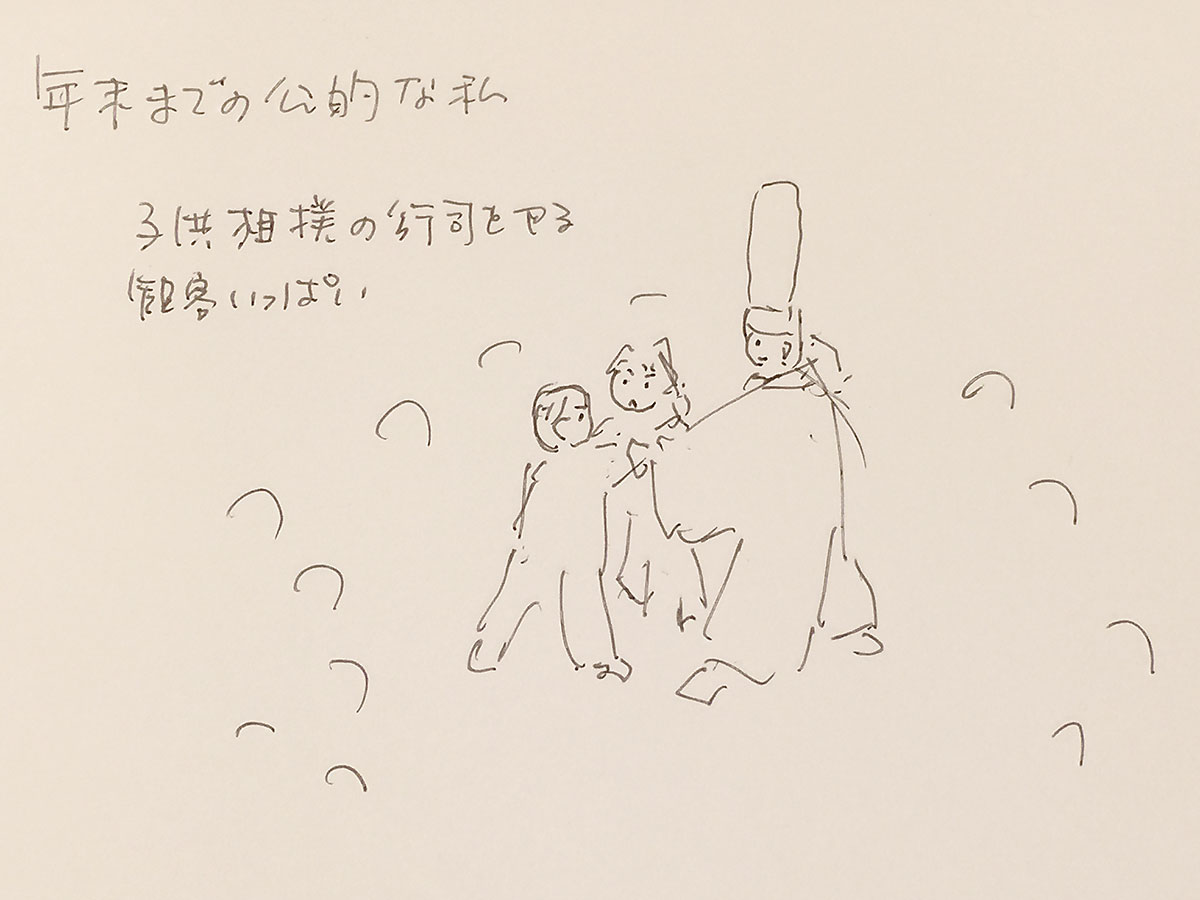 年末までの公的な私
子供相撲の行司をやる
観客いっぱい